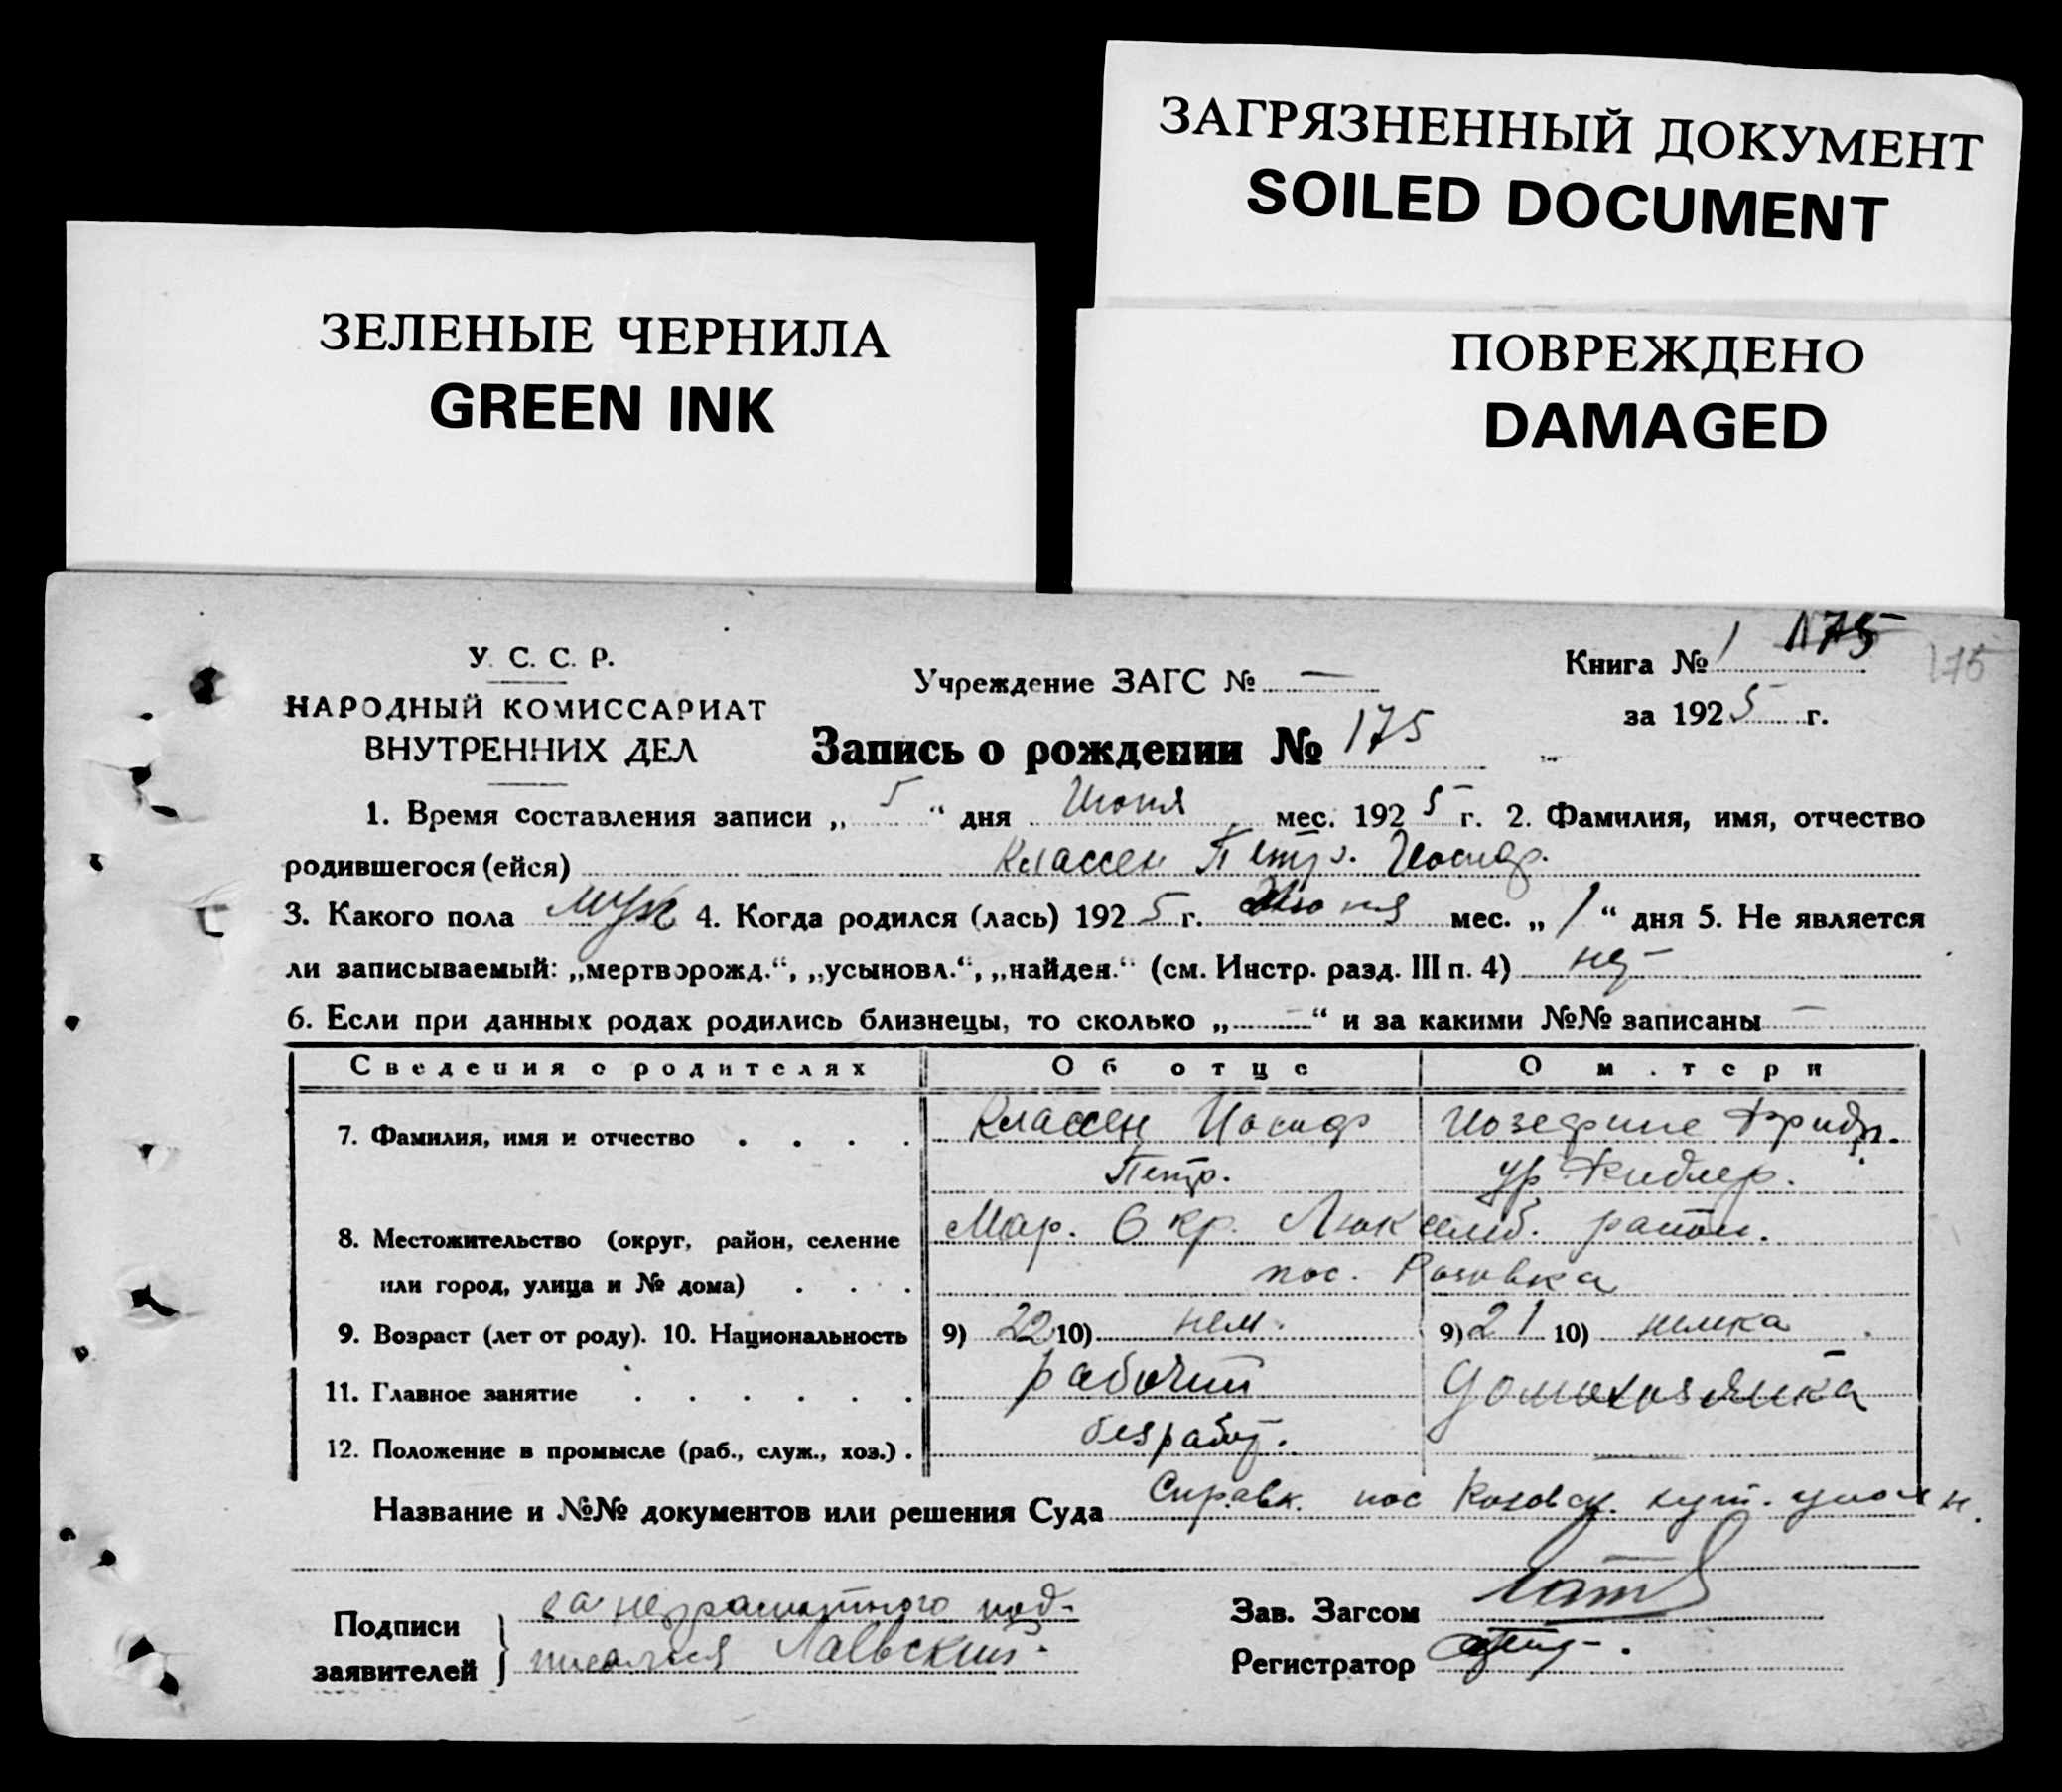 ЗАГРЯЗНЕННЫЙ ДОКУМЕНТ
SOILED DOCUMENT
ЗЕЛЕНЫЕ ЧЕРНИЛА
GREEN INK
ПОВРЕЖДЕНО
DAMAGED
У. С. С. Р.
НАРОДНЫЙ КОМИССАРИАТ
ВНУТРЕННИХ ДЕЛ
Учреждение ЗАГС № —
Книга № 1 175 175
за 1925 г.
Запись о рождении № 175
1. Время составления записи „ 5 “ дня Июня мес. 1925 г. 2. Фамилия, имя, отчество
родившегося (ейся) Классен Петр. Иосиф.
3. Какого пола муж 4. Когда родился (лась) 1925 г. Июня мес. „ 1 “ дня 5. Не является
ли записываемый: „мертворожд.“, „усыновл.“, „найден.“ (см. Инстр. разд. III п. 4) нет
6. Если при данных родах родились близнецы, то сколько „ — “ и за какими №№ записаны —
Сведения о родителях Об отце О м.тери
7. Фамилия, имя и отчество Классен Иосиф Иозефине Фридр.
Петр. ур Фидлер.
8. Местожительство (округ, район, селение Мар. Окр. Люксемб. район.
или город, улица и № дома) пос. Розовка
9. Возраст (лет от роду). 10. Национальность 9) 22 10) нем. 9) 21 10) немка
11. Главное занятие рабочий домохозяйка
12. Положение в промысле (раб., служ., хоз.) безработ. —
Название и №№ документов или решения Суда Справк. пос Розовск.
Подписи за неграмотного под-
заявителей писался
Зав. Загсом
Регистратор